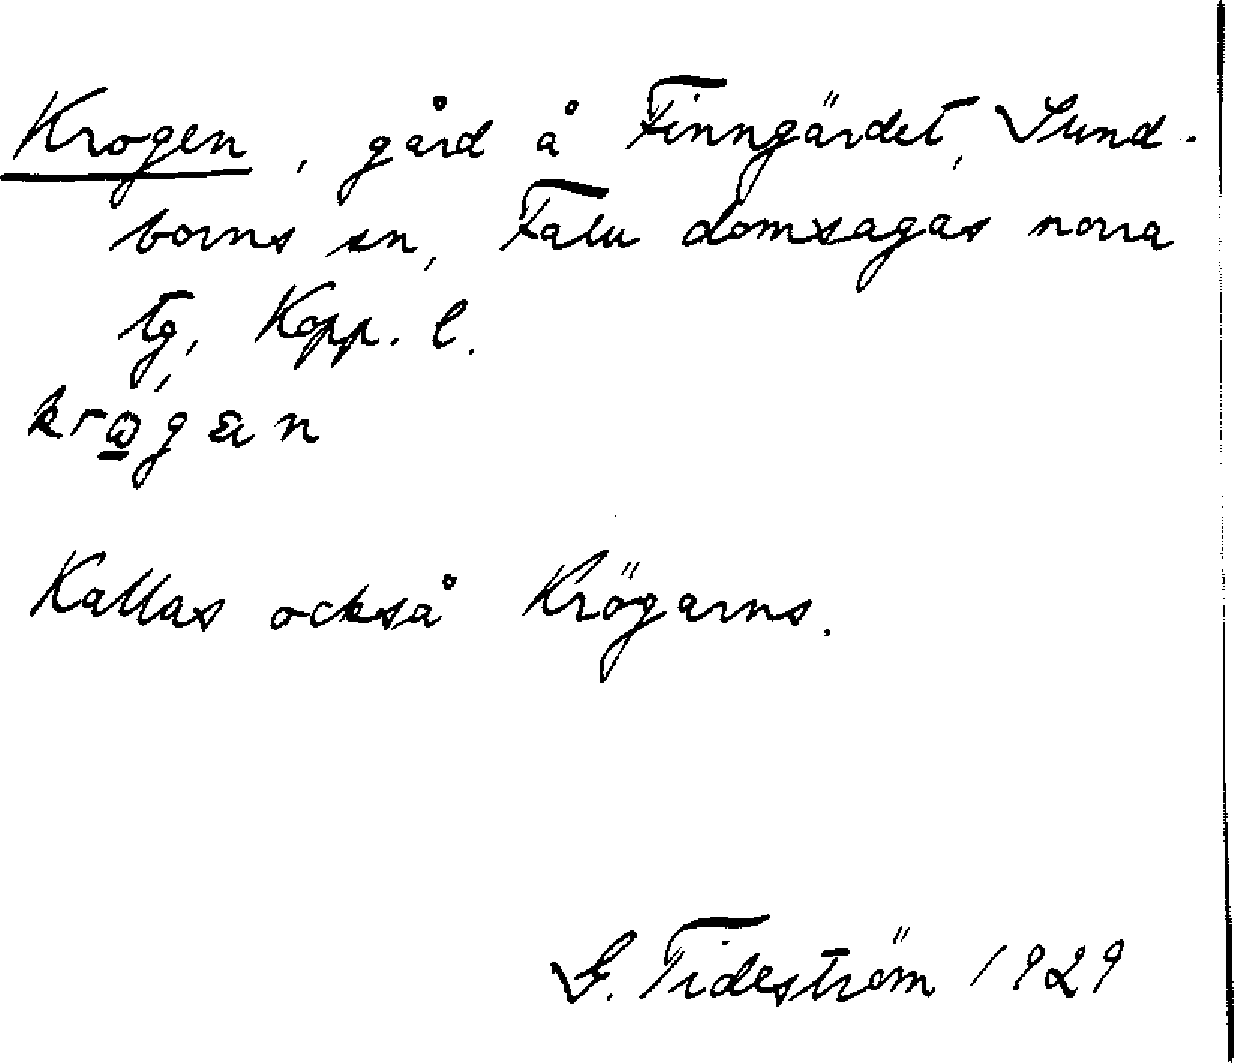 Krogen, gård å Finngärdet, Sund-
borns sn, Falu domsagas norra
tg, Kopp. l.
Kallas också Krögarns.
G. Tideström 1929